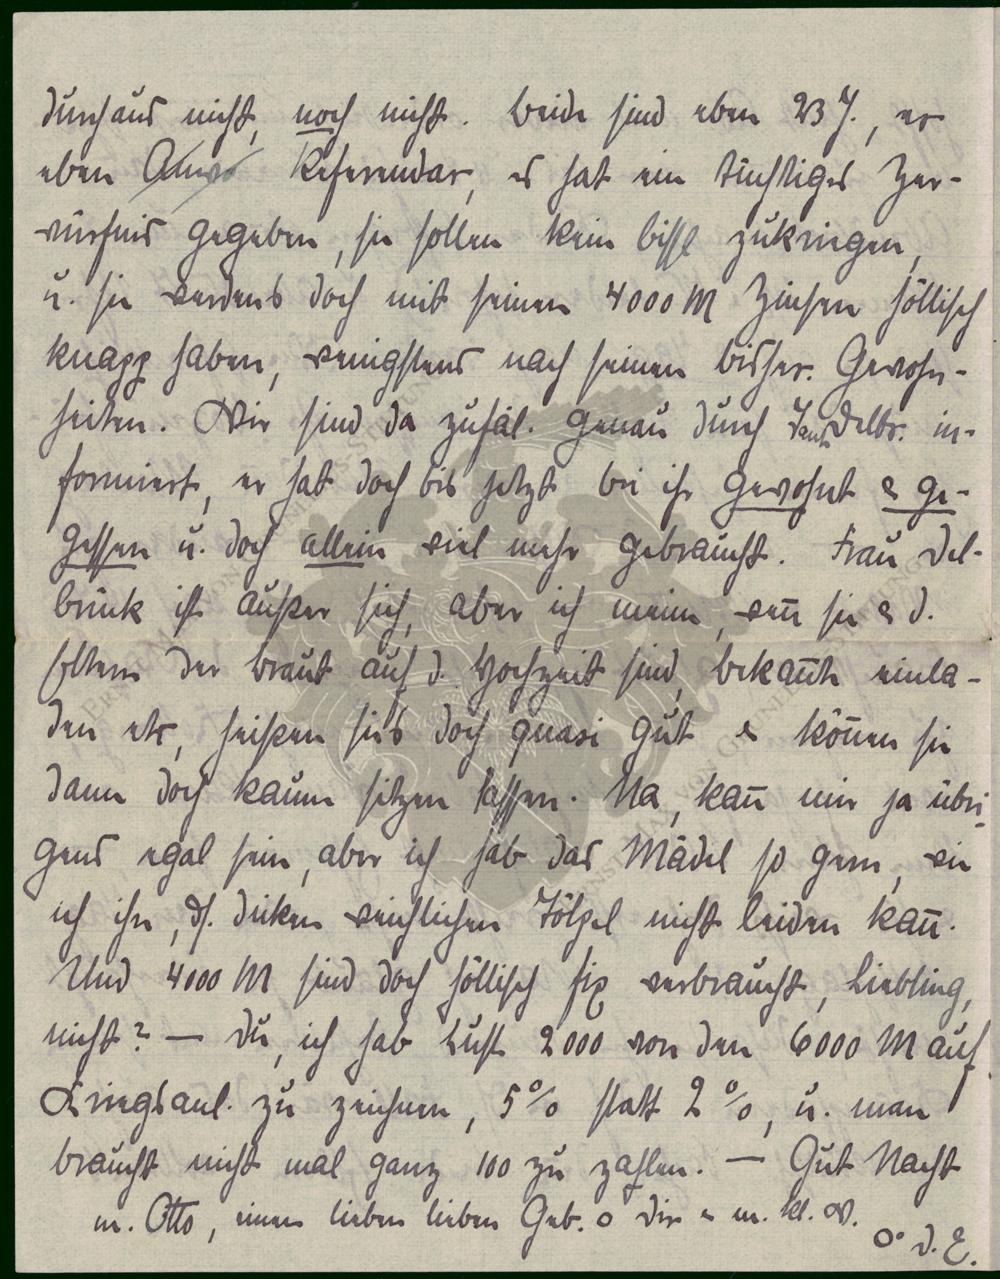 durchaus nicht, noch nicht. Beide sind eben 23 J., er
eben Referendar, es hat ein tüchtiges Zer-
würfnis gegeben, sie sollen kein bissl zukriegen,
u. sie werdens doch mit seinen 4000 M Zinsen höllisch
knapp haben, wenigstens nach seinen bisher. Gewohn-
heiten. Wir sind da zufäl. genau durch Delbr. in-
formiert, er hat doch bis jetzt bei ihr gewohnt & ge-
gessen u. doch allein viel mehr gebraucht. Frau Del-
brück ist außer sich, aber ich meine, weñ sie & d.
Eltern der Braut auf d. Hochzeit sind, bekañte einla-
den etc, heißen sie's doch quasi gut & köñen sie
dann doch kaum sitzen lassen. Na, kañ mir ja übri-
gens egal sein, aber ich hab das Mädel so gern, wie
ich ihn, dicken weichlichen Tölpel nicht leiden kañ.
Und 4000 M sind doch höllisch fix verbraucht, Liebling,
nicht? — Du, ich hab Lust 2000 von den 6000 M auf
Kriegsanl. zu zeichnen, 5% statt 2%, u. man
braucht nicht mal ganz 100 zu zahlen. — Gut Nacht
m. Otto, einen lieben lieben Geb. o Dir & m. kl. W.
d. E.